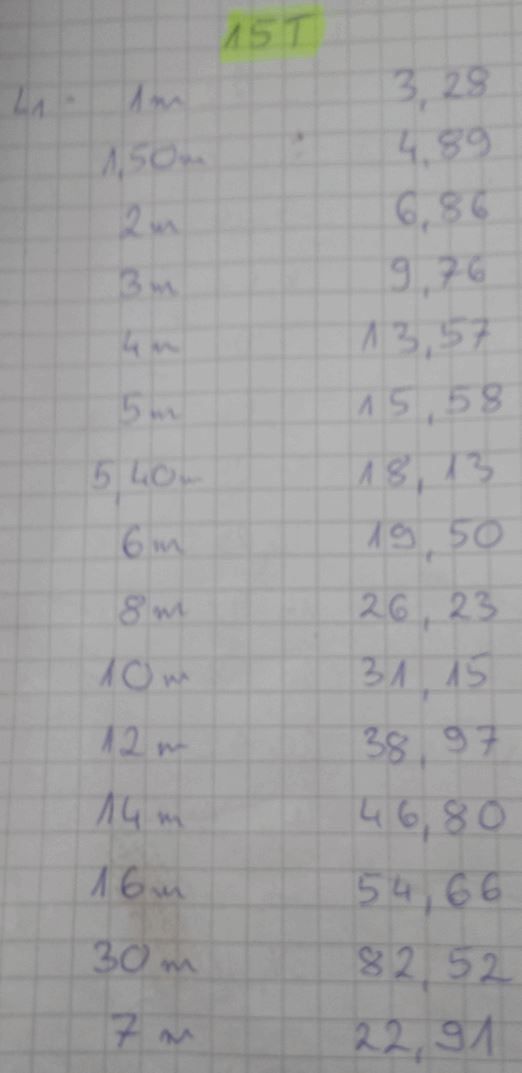 15T
L1. 1m 3,28
1,50m 4,89
2m 6,86
3m 9,76
4m 13,57
5m 15,58
5,40m 18,13
6m 19,50
8m 26,23
10m 31,15
12m 38,97
14m 46,80
16m 54,66
30m 82,52
7m 22,91